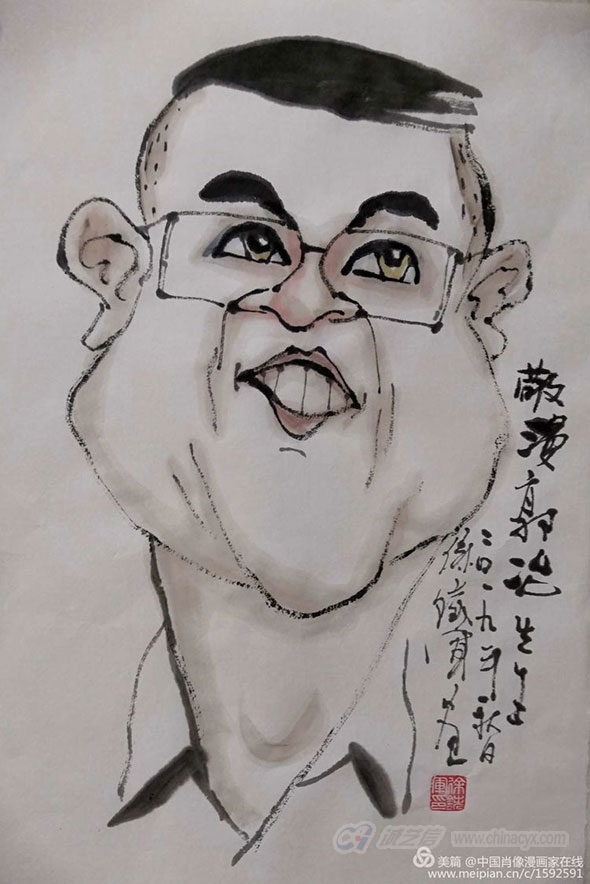 敬漫郭 先生
二〇一九年秋日
徐铁军画
漫艺宫
www.chinacyx.com
美篇 @中国肖像漫画家在线
www.meipian.cn/c/1592591